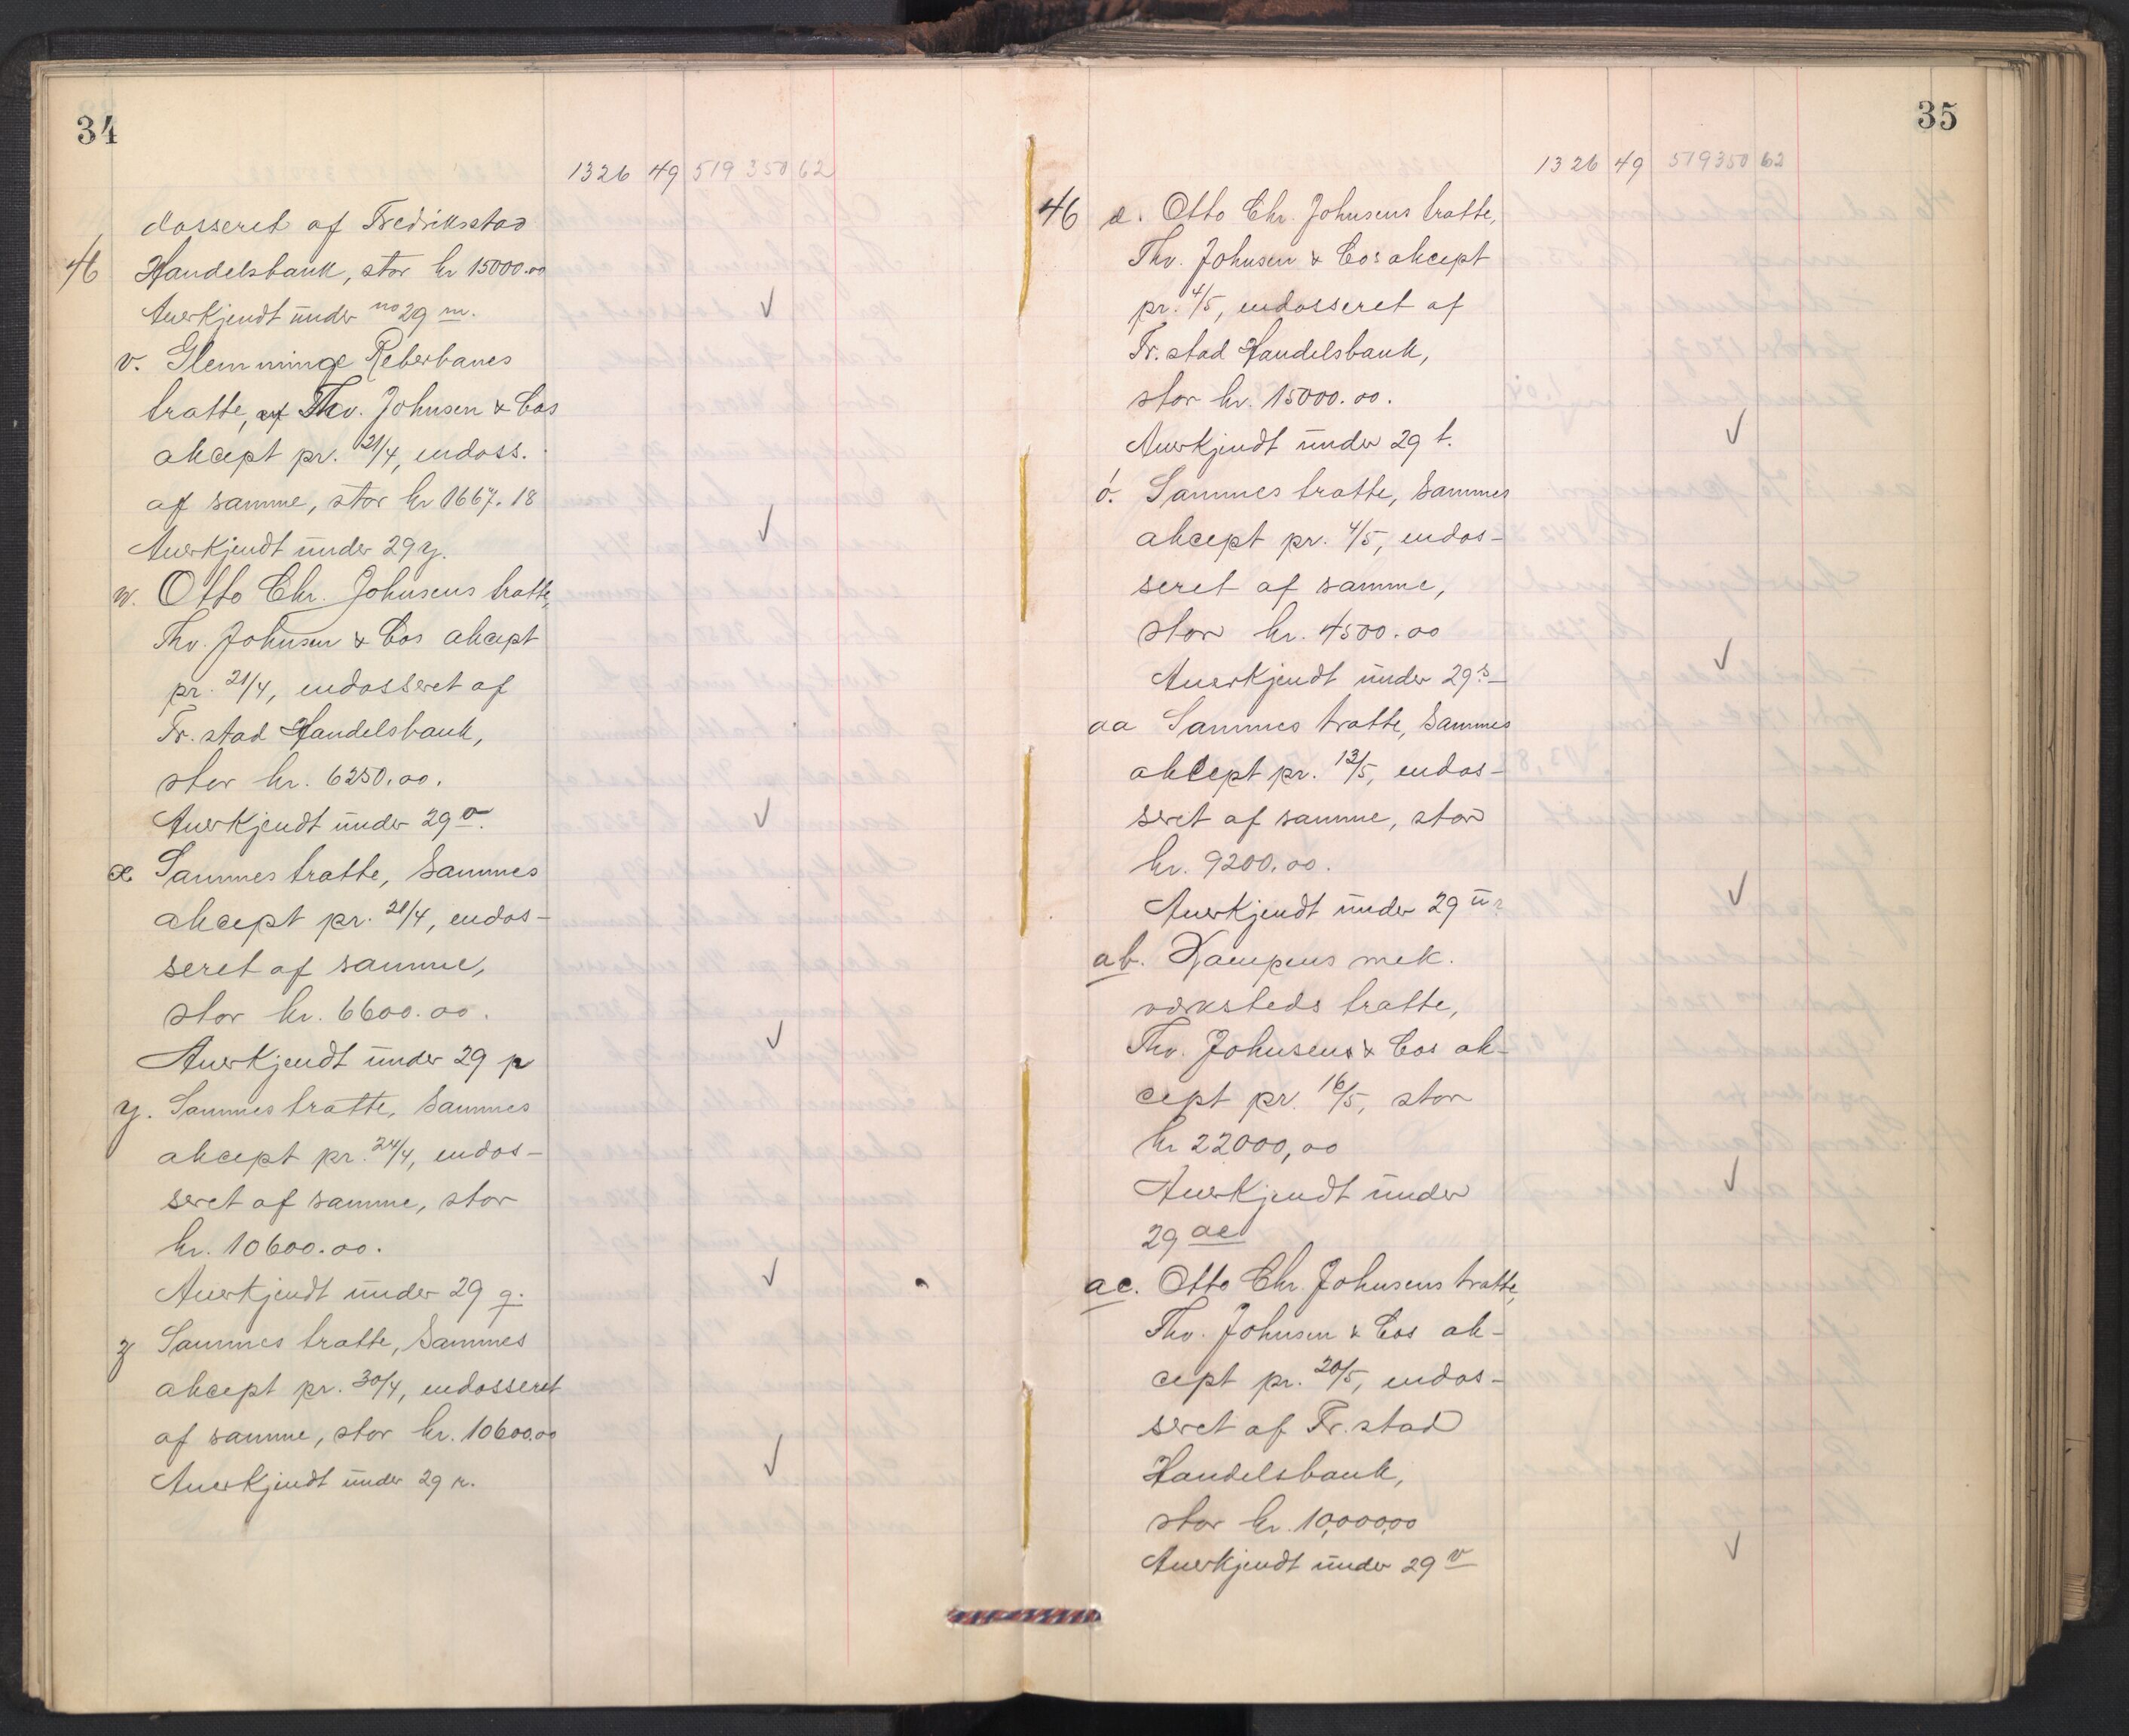 34
1326 49 519350 62
dosseret af Fredriksstad
46 Handelsbank, stor kr 15000.00
Anerkjendt under no 29 m.
v. Glemminge Reberbanes
tratte, af Thv. Johnsen & Cos
akcept pr. 21/4, endoss.
af samme, stor kr 1667.18
Anerkjendt under 29 y.
w. Otto Chr. Johnsens tratte,
Thv. Johnsen & Cos akcept
pr. 21/4, endosseret af
Fr.stad Handelsbank,
stor kr. 6250.00.
Anerkjendt under 29 o.
x Sammes tratte, Sammes
akcept pr. 21/4, endos-
seret af samme,
stor kr. 6600.00.
Anerkjendt under 29 p
y. Sammes tratte, Sammes
akcept pr. 24/4, endos-
seret af samme, stor
kr. 10600.00.
Anerkjendt under 29 q.
z Sammes tratte, Sammes
akcept pr. 30/4, endosseret
af samme, stor kr. 10600.00
Anerkjendt under 29 r.
35
1326 49 519350 62
46 æ. Otto Chr. Johnsens tratte,
Thv. Johnsen & Cos akcept
pr. 4/5, endosseret af
Fr.stad Handelsbank,
stor kr. 15000.00.
Anerkjendt under 29 t.
ö. Sammes tratte, Sammes
akcept pr. 4/5, endos-
seret af samme,
stor kr. 4500.00
Anerkjendt under 29 s
aa Sammes tratte, Sammes
akcept pr. 13/5, endos-
seret af samme, stor
kr. 9200.00.
Anerkjendt under 29 u
ab. Kampens mek.
værksteds tratte,
Thv. Johnsens & Cos ak-
cept pr. 16/5, stor
kr 22000,00
Anerkjendt under
29 ae
ac. Otto Chr. Johnsens tratte,
Thv. Johnsen & Cos ak-
cept pr. 20/5, endos-
seret af Fr.stad
Handelsbank,
stor kr. 10,000,00
Anerkjendt under 29 v